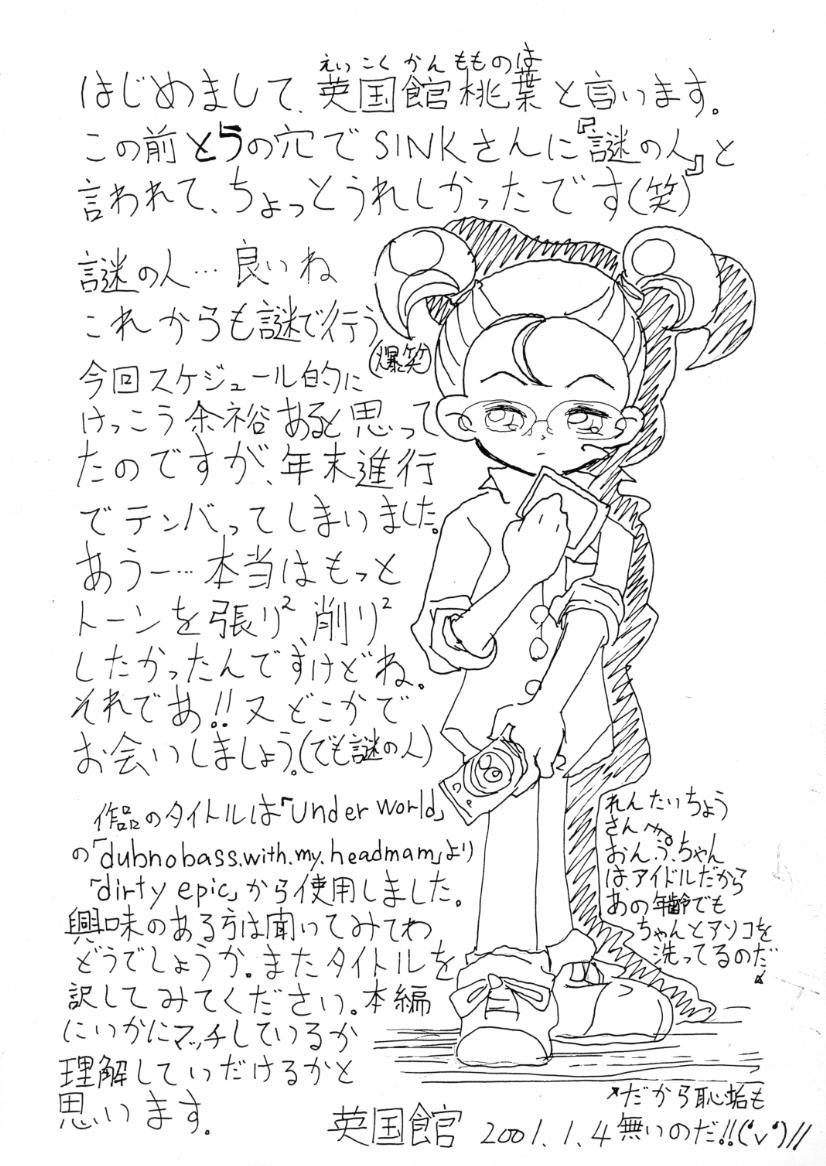 えいこくかんもものは
はじめまして、英国館桃葉と言います。
この前とらの穴でSINKさんに『謎の人』と
言われて、ちょっとうれしかったです(笑)
謎の人…良いね
これからも謎で行う
(爆笑)
今回スケジュール的に
けっこう余裕あると思って
たのですが、年末進行
でテンパってしまいました。
あうー…本当はもっと
トーンを張り²、削り²
したかったんですけどね。
それであ!!又どこかで
お会いしましょう。(でも謎の人)
作品のタイトルは「Under World」
の「dubnobass.with.my.headmam」より
「dirty epic」から使用しました。
興味のある方は聞いてみてわ
どうでしょうか。またタイトルを
訳してみてください。本編
にいかにマッチしているか
理解していだけるかと
思います。
英国館 2001.1.4